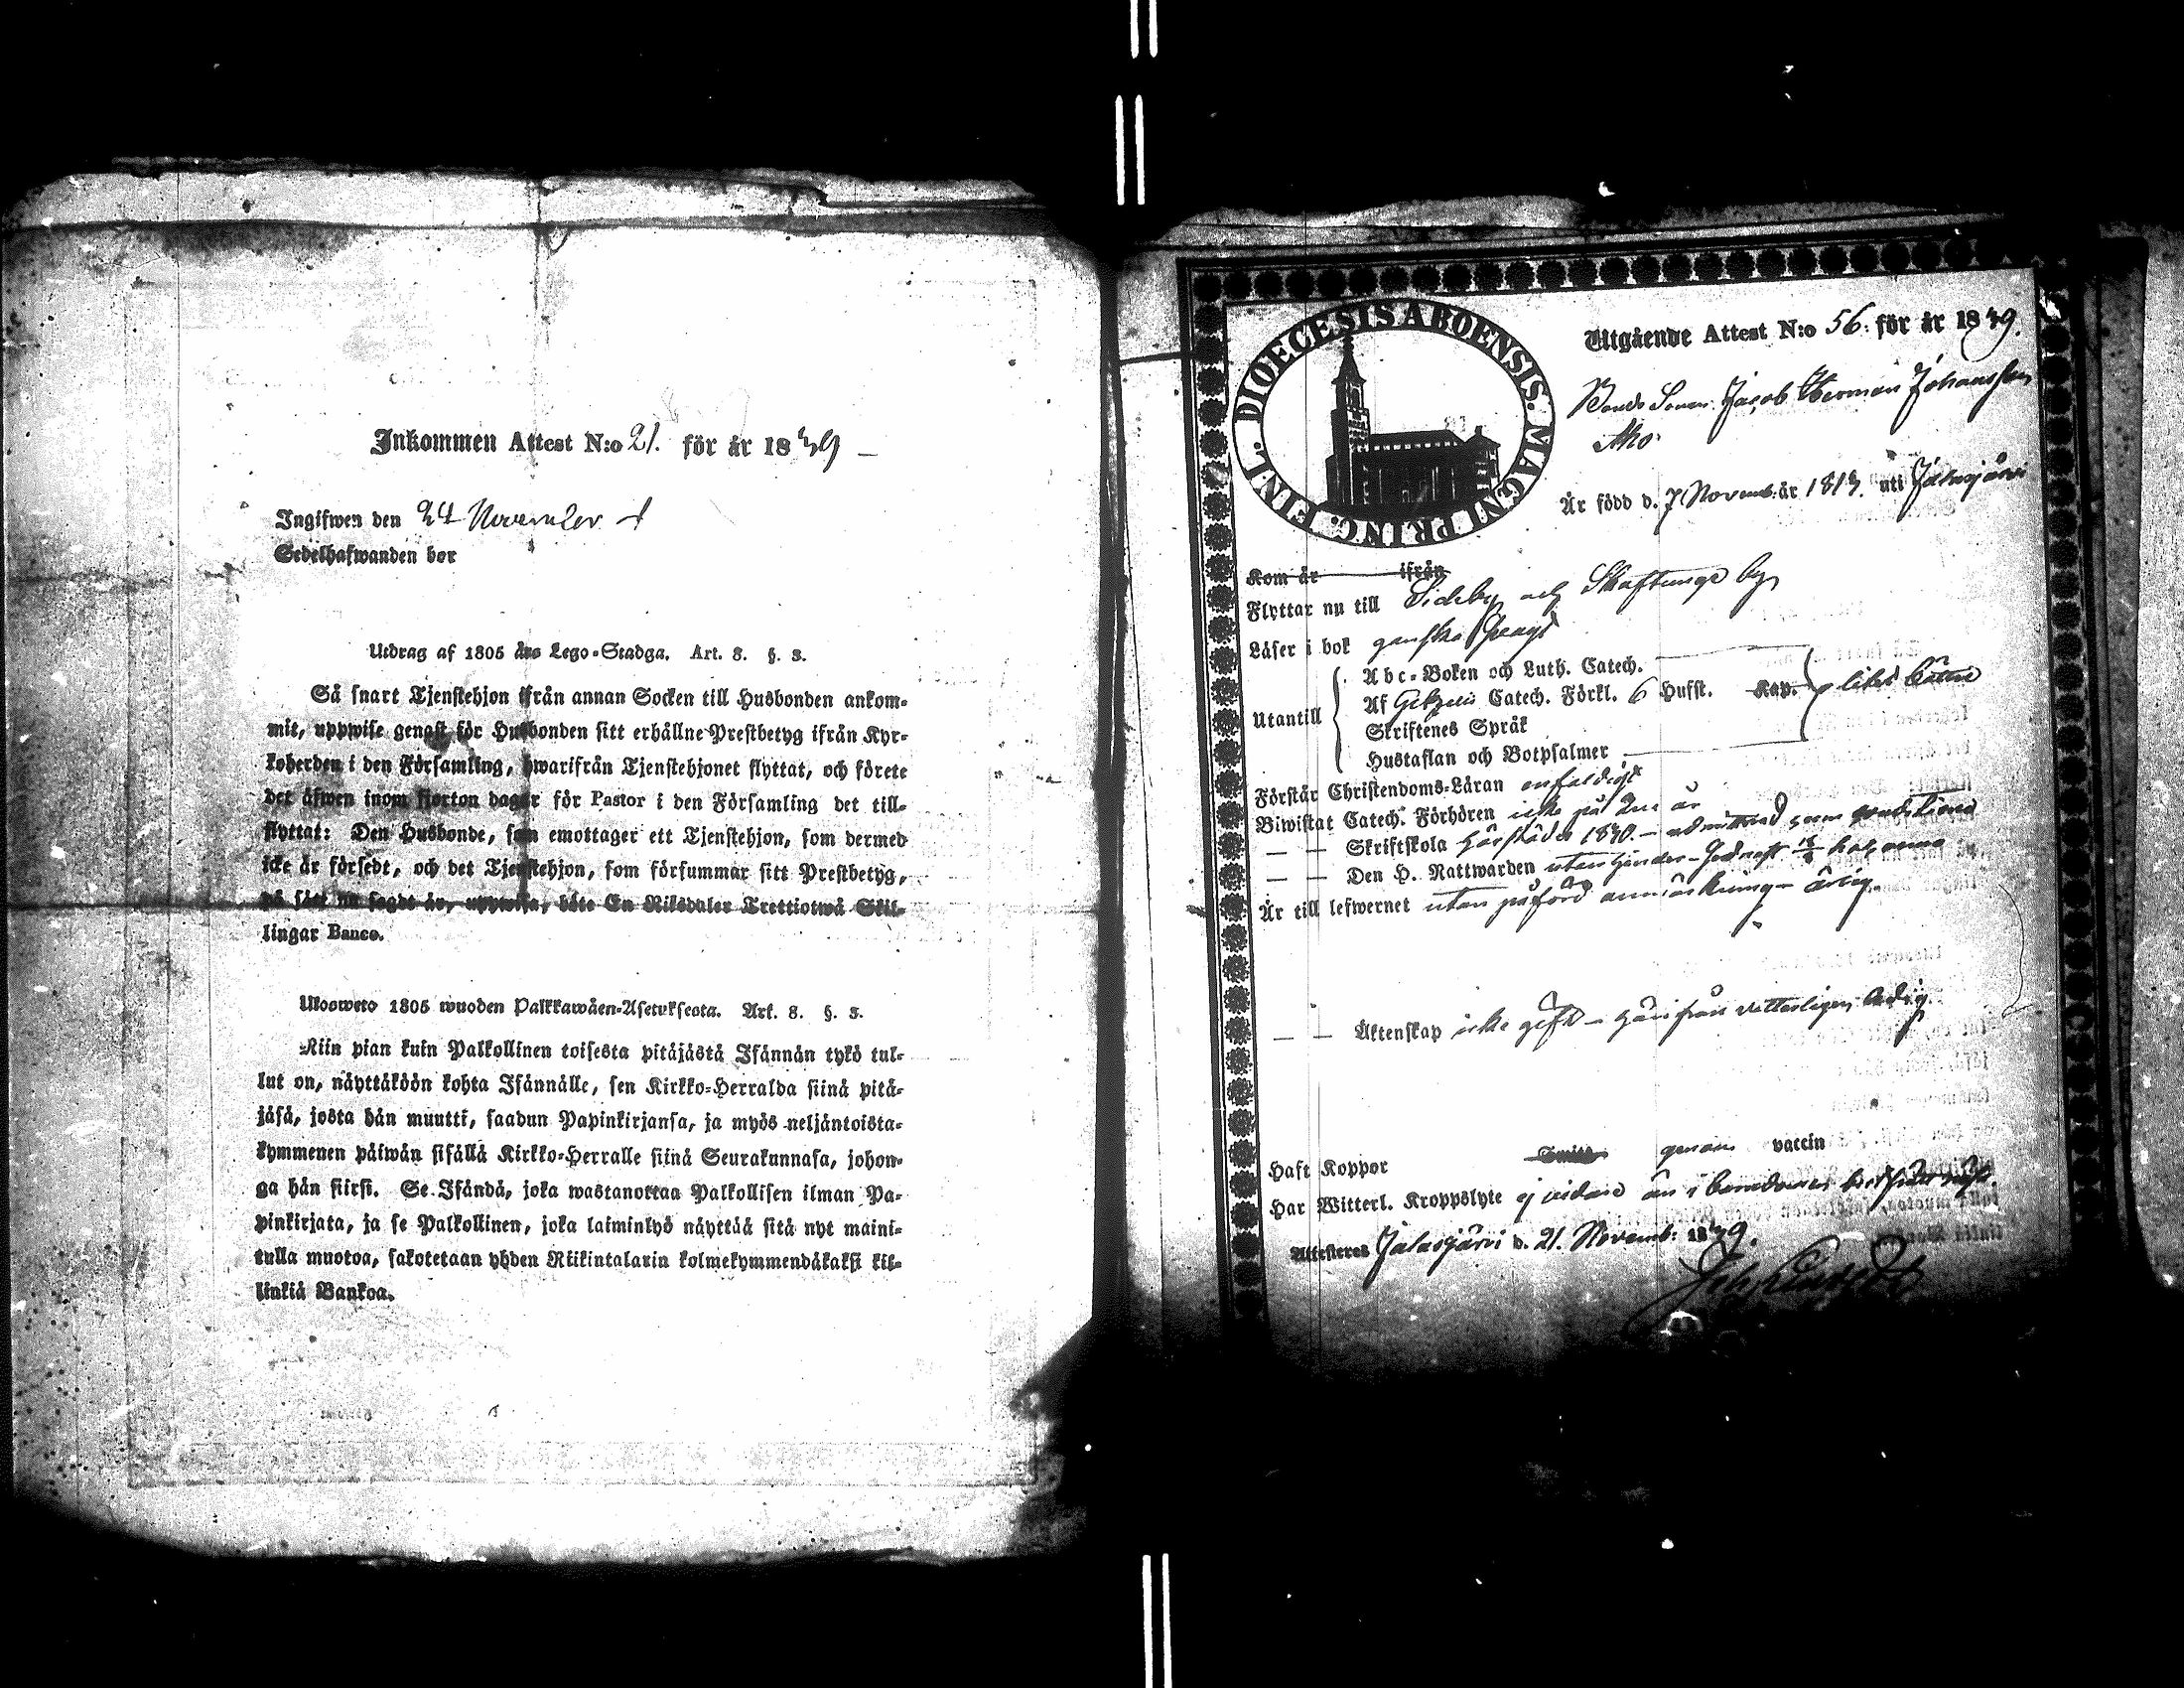 Inkommen Attest N:o 21. för år 1839
Ingifwen den 24 November
Sedelhafwanden bor
Utdrag af 1805 års Lego-Stadga. Art. 8. §. 3.
Så snart Tjenstehjon ifrån annan Socken till Husbonden ankom-
mit, uppwise genast för Husbonden sitt erhållne Prestbetyg ifrån Kyr-
koherden i den Församling, hwarifrån Tjenstehjonet flyttat, och förete
det äfwen inom fjorton dagar för Pastor i den Församling det till-
flyttat: Den Husbonde, som emottager ett Tjenstehjon, som dermed
icke är försedt, och det Tjenstehjon, som försummar sitt Prestbetyg,
på sätt nu sagdt är, uppwisa, böte En Riksdaler Trettiotwå Skil-
lingar Banco.
Ulosweto 1805 wuoden Palkkawäen-Asetuksesta. Art. 8. §. 3.
Niin pian kuin Palkollinen toisesta pitäjästä Isännän tykö tul-
lut on, näyttäköön kohta Isännälle, sen Kirkko-Herralda siinä pitä-
jäsä, josta hän muutti, saadun Papinkirjansa, ja myös neljäntoista-
kymmenen päiwän sisällä Kirkko-Herralle siinä Seurakunnasa, johon-
ga hän siirsi. Se Isändä, joka wastanottaa Palkollisen ilman Pa-
pinkirjata, ja se Palkollinen, joka laiminlyö näyttää sitä nyt maini-
tulla muotoa, sakotetaan yhden Riikintalarin kolmekymmendäkaksi kil-
linkiä Bankoa.
DIOECESIS ABOENSIS. MAGNI PRINC. FINL.
Utgående Attest N:o 56. för år 1839.
Bonde Sonen Jacob Herman Johansson
Aho
Är född d. 7 Novemb. år 1813. uti Jalasjärvi
Kom år ifrån
Flyttar nu till Sideby och Skaftunge by
Läser i bok ganska
Abc-Boken och Luth. Catech.
Af Gezelii Catech. Förkl. 6 Hufst. Kap.
Utantill
Skriftenes Språk
Hustaflan och Botpsalmer
Förstår Christendoms-Läran enfaldigt
Biwistat Catech. Förhören icke på år
— — Skriftskola härstädes 1830. — admitterad
— — Den H. Nattwarden
Är till lefwernet utan påförd anmärkning - ärlig.
— — Äktenskap icke gift — härifrån vetterligen ledig
Haft Koppor genom vaccin
Har Witterl. Kroppslyte ej vidare än i
Attesteras Jalasjärvi d. 21. Novemb: 1839.